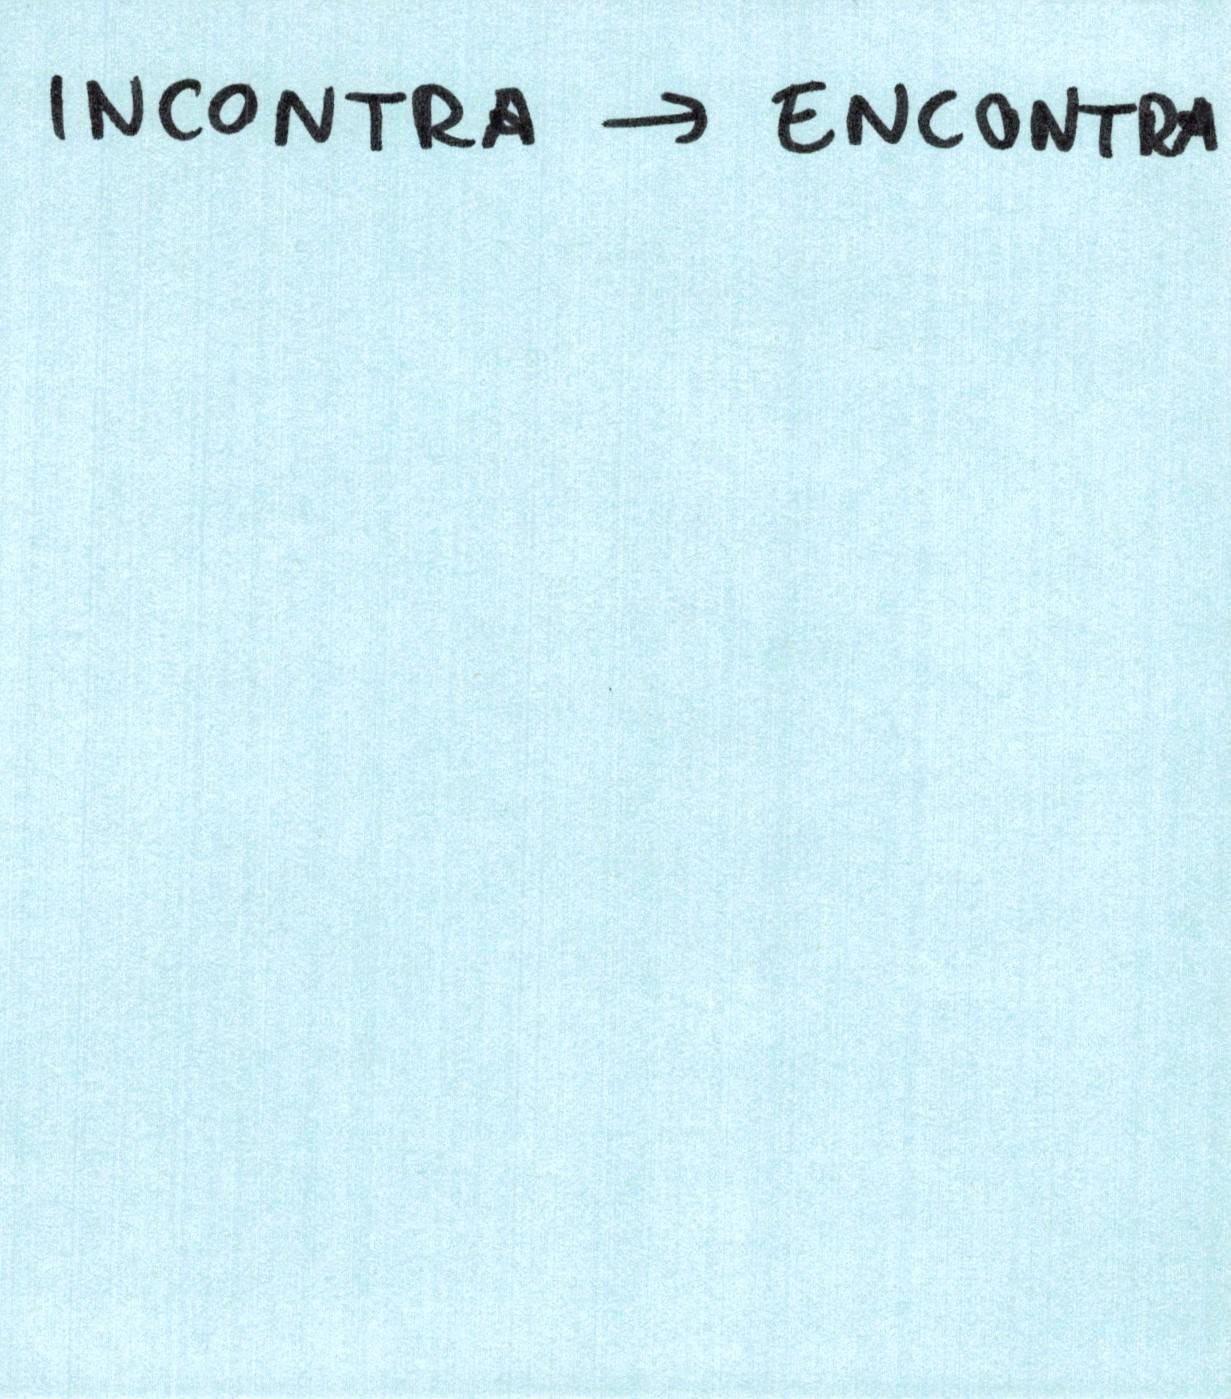 INCONTRA → ENCONTRA